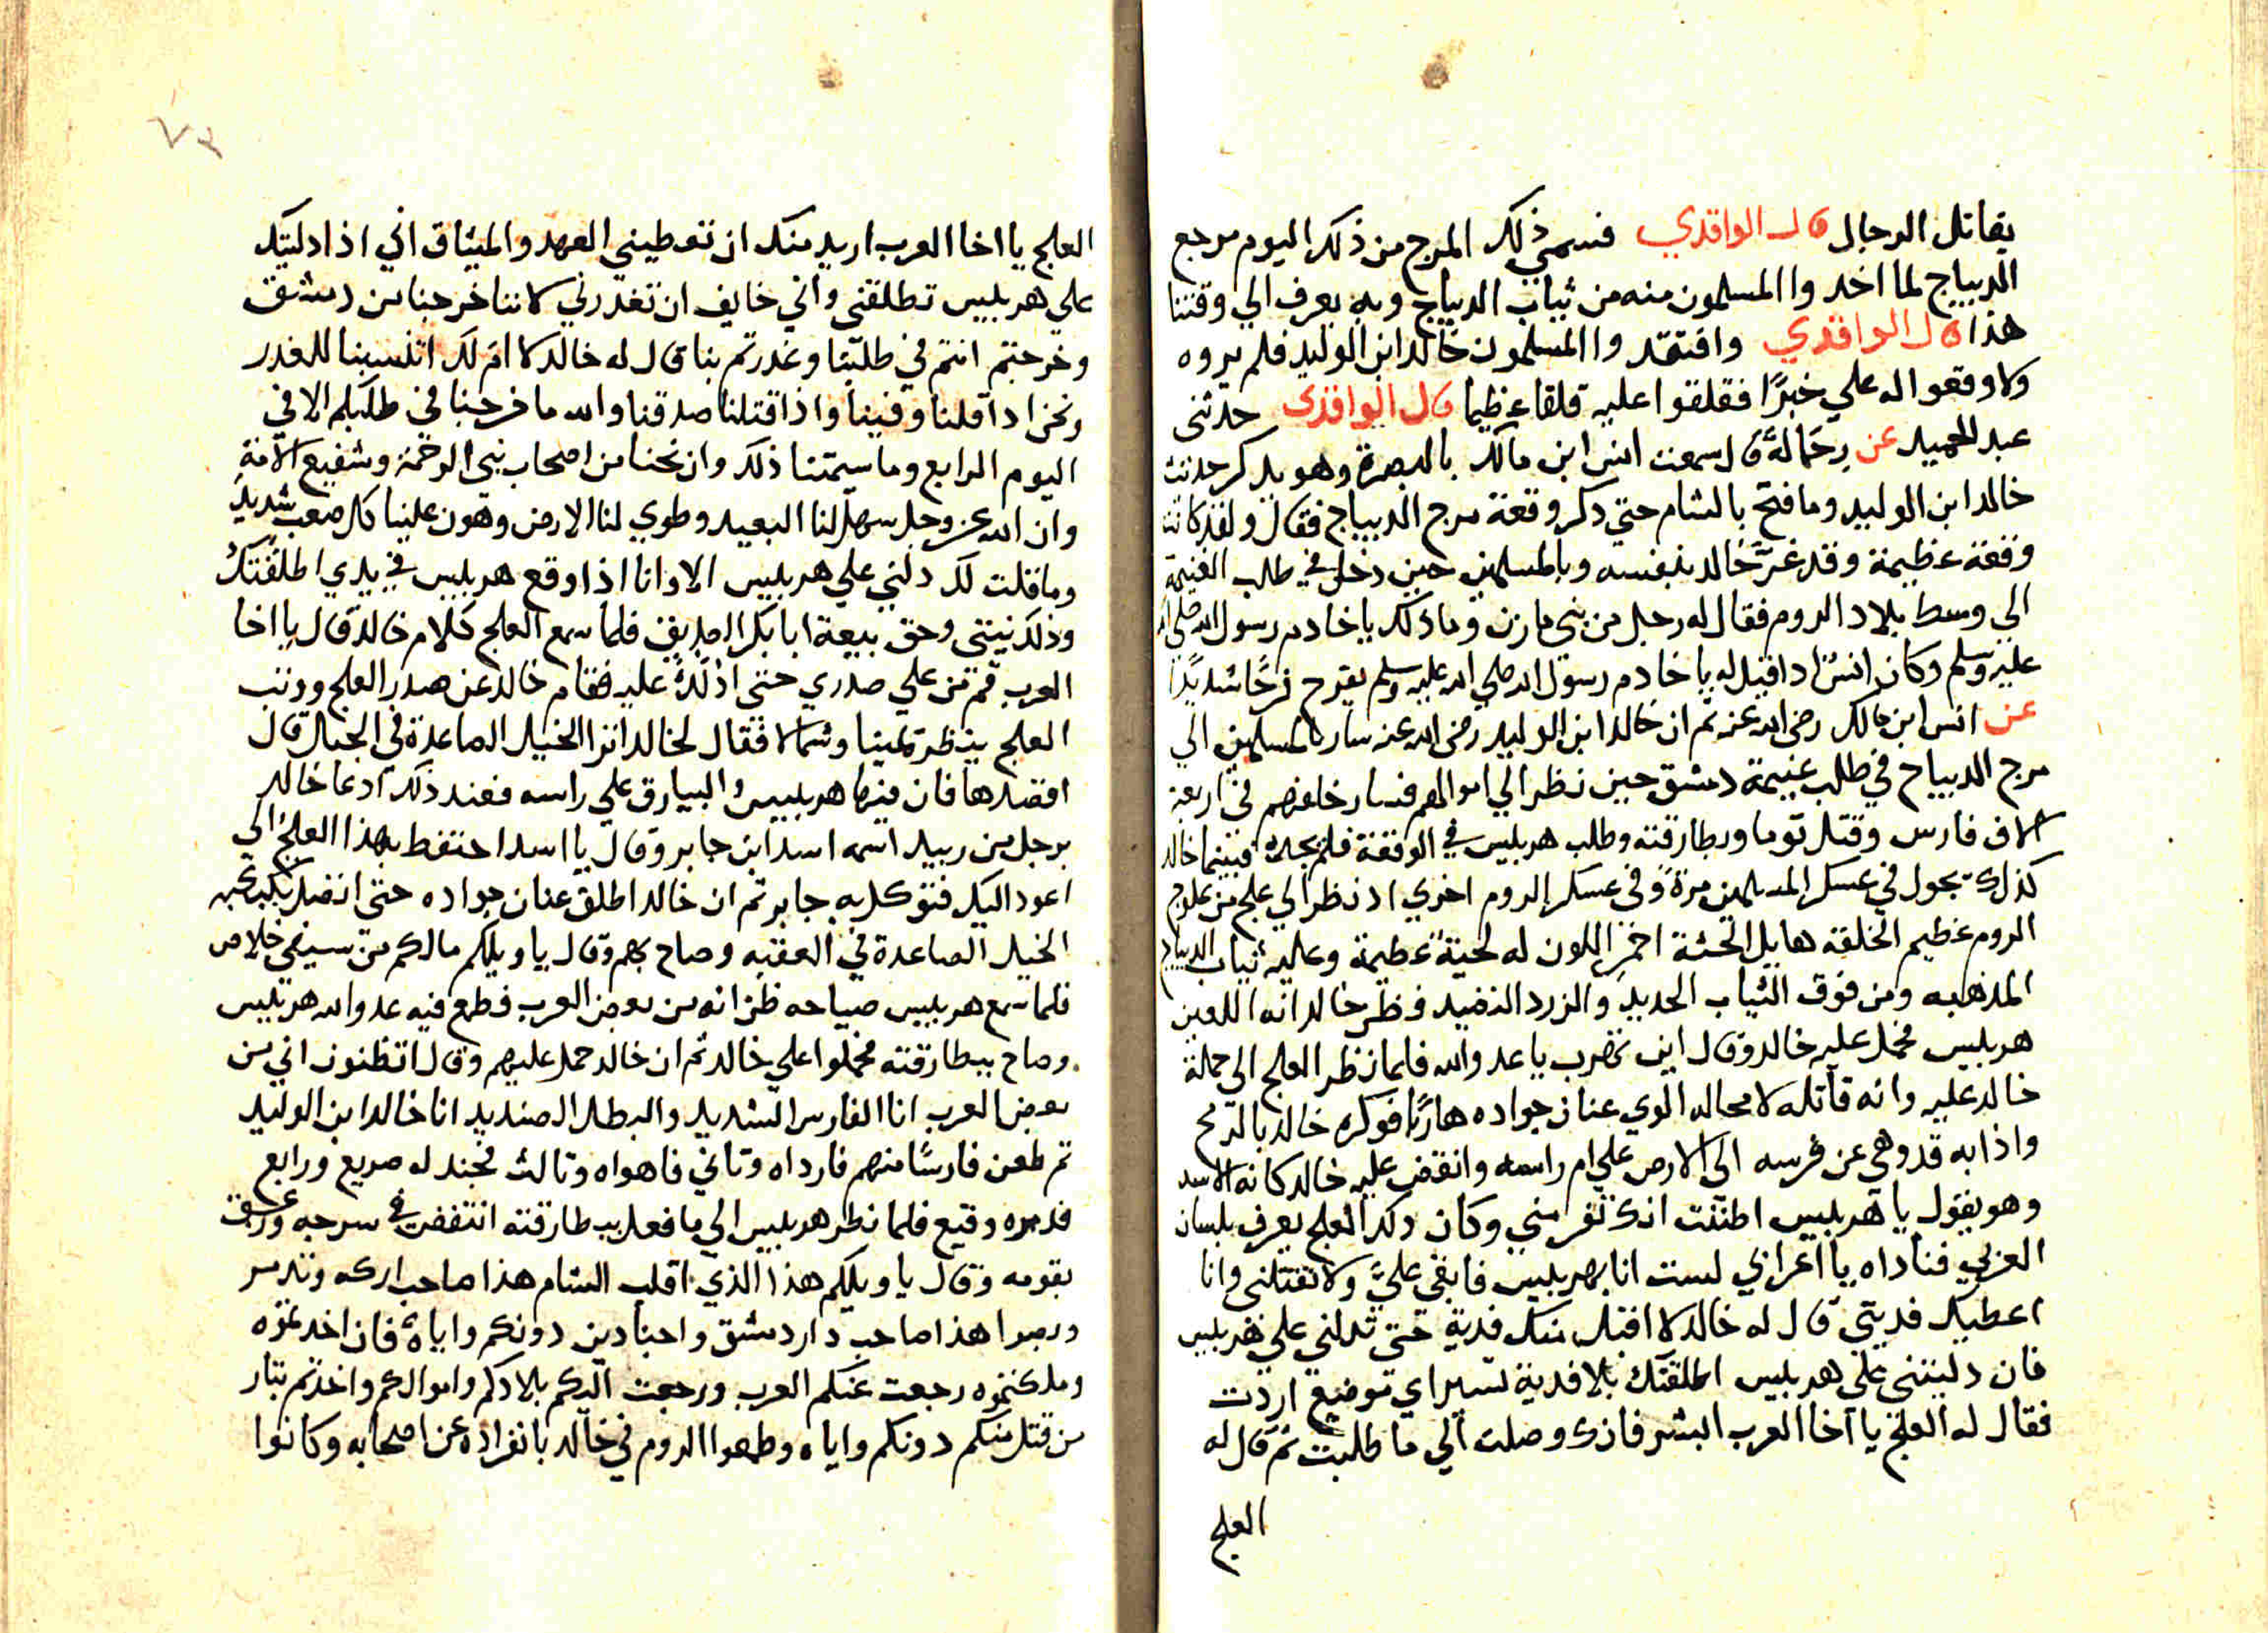 يقاتل الرجال قال الواقدي فسمي ذلك المرج من ذلك اليوم مرجع
الديباج لما اخدوا المسلمون منه من ثياب الديباج وبه يعرف الي وقتنا
هذا قال الواقدي وافتقدوا المسلمون خالد ابن الوليد فلم يروه
ولا وقعوا له علي خبرًا فقلقوا عليه قلقا عظيما قال الواقدي حدثني
عبد الحميد عن رحاله قال سمعت انس ابن مالك بالبصرة وهو يدكر حديث
خالد ابن الوليد وما فتح بالشام حتي دكر وقعة مرج الديباج فقال ولقد كانت
وقعة عظيمة وقد غرّ خالد بنفسه وبالمسلمين حين دخل في طلب الغنيمة
الي وسط بلاد الروم فقال له رجل من بني مازن وما ذلك يا خادم رسول الله صلي الله
عليه وسلم وكان انسُ اداقيل له يا خادم رسول الله صلي الله عليه وسلم يفرح فرحًا شديدًا
عن انس ابن مالك رضي الله عنه ثم ان خالد ابن الوليد رضي الله عنه سار بالمسلمين الي
مرج الديباج في طلب غنيمة دمشق حين نظر الي اموالهم فسار خلفهم في اربعة
الاف فارس وقتل توما وبطارقته وطلب هربليس في الوقعة فلم يجده فبينما خالد
كذلك يجول في عسكر المسلمين مرة وفي عسكر الروم اخري اد نظر الي علج من علوج
الروم عظيم الخلقه هايل الجثة احمر اللون له لحية عظيمة وعليه ثياب الديباج
المدهبه ومن فوق الثياب الحديد والزرد النضيد فظن خالد انه اللعين
هربليس فحمل عليه خالد وقال اين تهرب يا عدو الله فلما نظر العلج الي حملة
خالد عليه وانه قاتله لا محاله الوي عنان جواده هاربًا فوكزه خالد بالرمح
واذا به قد وهي عن فرسه الي الارض علي ام راسه وانقض عليه خالد كانه الاسد
وهو يقول يا هربليس اظننت انك تفر مني وكان دلك العلج يعرف بلسان
العربي فناداه يا اعرابي لست انا بهربليس فابقي عليَّ ولا تقتلني وانا
اعطيك فديتي قال له خالد لا اقبل منك فدية حتي تدلني علي هربليس
فان دليتني علي هربليس اطلقتك بلا فدية تسير اي توضع اردت
فقال له العلج يا اخا العرب ابشر فانك وصلت الي ما طلبت ثم قال له
العلج
٧٣
العلج يا اخا العرب اريد منك ان تعطيني العهد والميثاق اني اذا دليتك
علي هربليس تطلقني واني خايف ان تغدر بي لاننا خرجنا من دمشق
وخرجتم انتم في طلبنا وغدرتم بنا قال له خالد لا ام لك اتنسبنا للغدر
ونحن ادا قلنا وفينا واذا قتلنا صدقنا والله ما خرجنا في طلبكم الا في
اليوم الرابع وما سيمتنا ذلك وان نحن من اصحاب نبي الرحمة وشفيع الامة
وان الله عز وجل سهل لنا البعيد وطوي لنا الارض وهون علينا كل صعب شديد
وما قلت لك دلني علي هربليس الا وانا اذا وقع هربليس في يدي اطلقتك
وذلك نيتي وحق بيعة ابا بكر الصديق فلما سمع العلج كلام خالد قال يا اخا
العرب قم من علي صدري حتي ادلك عليه فقام خالد عن صدر العلج ووثب
العلج ينظر يمينا وشمالا فقال لخالد اترا الخيل الصاعدة في الجبال قال
اقصدها فان فيها هربليس والبيارق علي راسه فعند ذلك ادعا خالد
برجل من ربيد اسمه اسد ابن جابر وقال يا اسد احتفظ بهذا العلج الي
اعود اليك فتوكل به جابر ثم ان خالد اطلق عنان جواده حتي اتصل بكبكبه
الخيل الصاعدة في العقبه وصاح بهم وقال يا ويلكم مالكم من سيفي خلاص
فلما سمع هربليس صياحه ظن انه من بعض العرب فطمع فيه عدو الله هربليس
وصاح ببطارقته فحملوا علي خالد ثم ان خالد حمل عليهم وقال اتظنون اني من
بعض العرب انا الفارس الشديد والبطل الصنديد انا خالد ابن الوليد
ثم طعن فارسًا منهم فارداه وتاني فاهواه وتالث فجندله صريع ورابع
فدمره وقيع فلما نظر هربليس الي ما فعل ببطارقته انتفض في سرجه وزعق
بقومه وقال يا ويلكم هذا الذي اقلب الشام هذا صاحب اركه وتدمر
وبصرا هذا صاحب دار دمشق واجنادين دونكم واياه فان اخدتموه
وملكتموه رجعت عنكم العرب ورجعت اليكم بلادكم واموالكم واخدتم بثار
من قتل منكم دونكم واياه وطمعوا الروم في خالد بانفراده عن اصحابه وكانوا